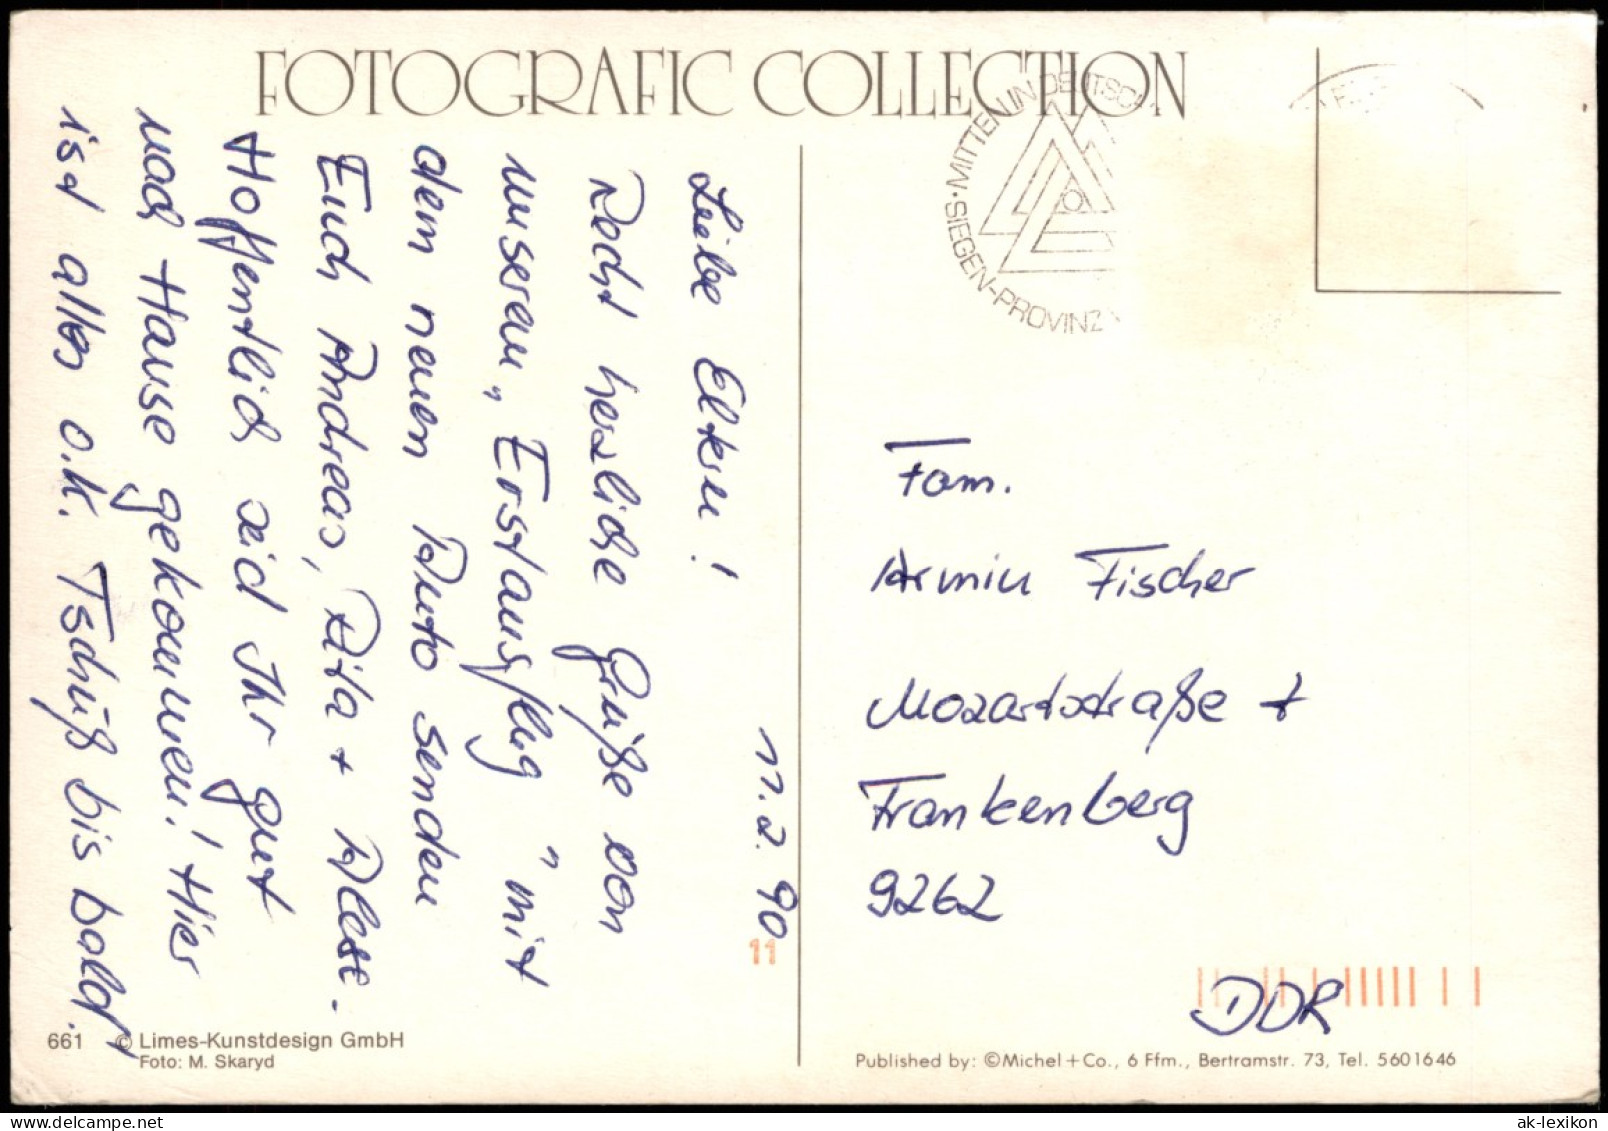 FOTOGRAFIC COLLECTION
MITTEN IN DEUTSCH
SIEGEN-PROVINZ
11.2.90
Liebe Eltern!
Recht herzliche Grüße von
unserem „Erstausflug" mit
dem neuen Auto senden
Euch Andreas, Rita +
Hoffentlich seid Ihr gut
nach Hause gekommen! Hier
ist alles o.k. Tschüß bis bald.
Fam.
Armin Fischer
Mozartstraße 7
Frankenberg
9262
DDR
11
661 © Limes-Kunstdesign GmbH
Foto: M. Skaryd
Published by: ©Michel+Co., 6 Ffm., Bertramstr. 73, Tel. 5601646
ak-lexikon.com